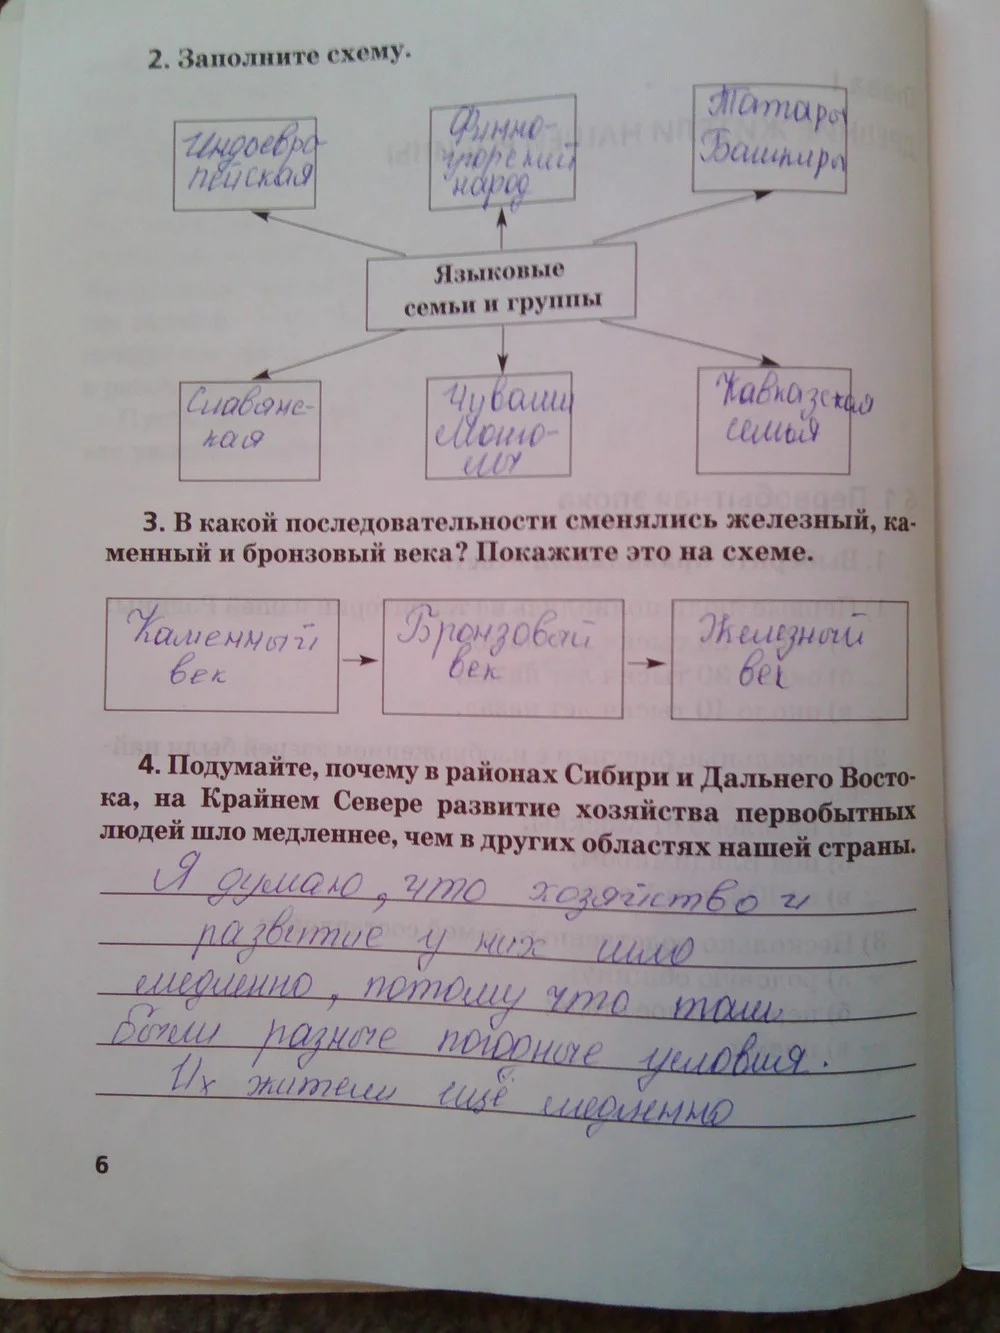 2. Заполните схему.
Индоевро-
пейская
Финно-
угорский
народ
Татары
Башкиры
Языковые
семьи и группы
Славянс-
кая
Чуваши
Монго-
лы
Кавказская
семья
3. В какой последовательности сменялись железный, ка-
менный и бронзовый века? Покажите это на схеме.
Каменный
век
Бронзовый
век
Железный
век
4. Подумайте, почему в районах Сибири и Дальнего Восто-
ка, на Крайнем Севере развитие хозяйства первобытных
людей шло медленнее, чем в других областях нашей страны.
Я думаю, что хозяйство и
развитие у них шло
медленно, потому что там
были разные погодные условия.
Их жители ещё медленно
6